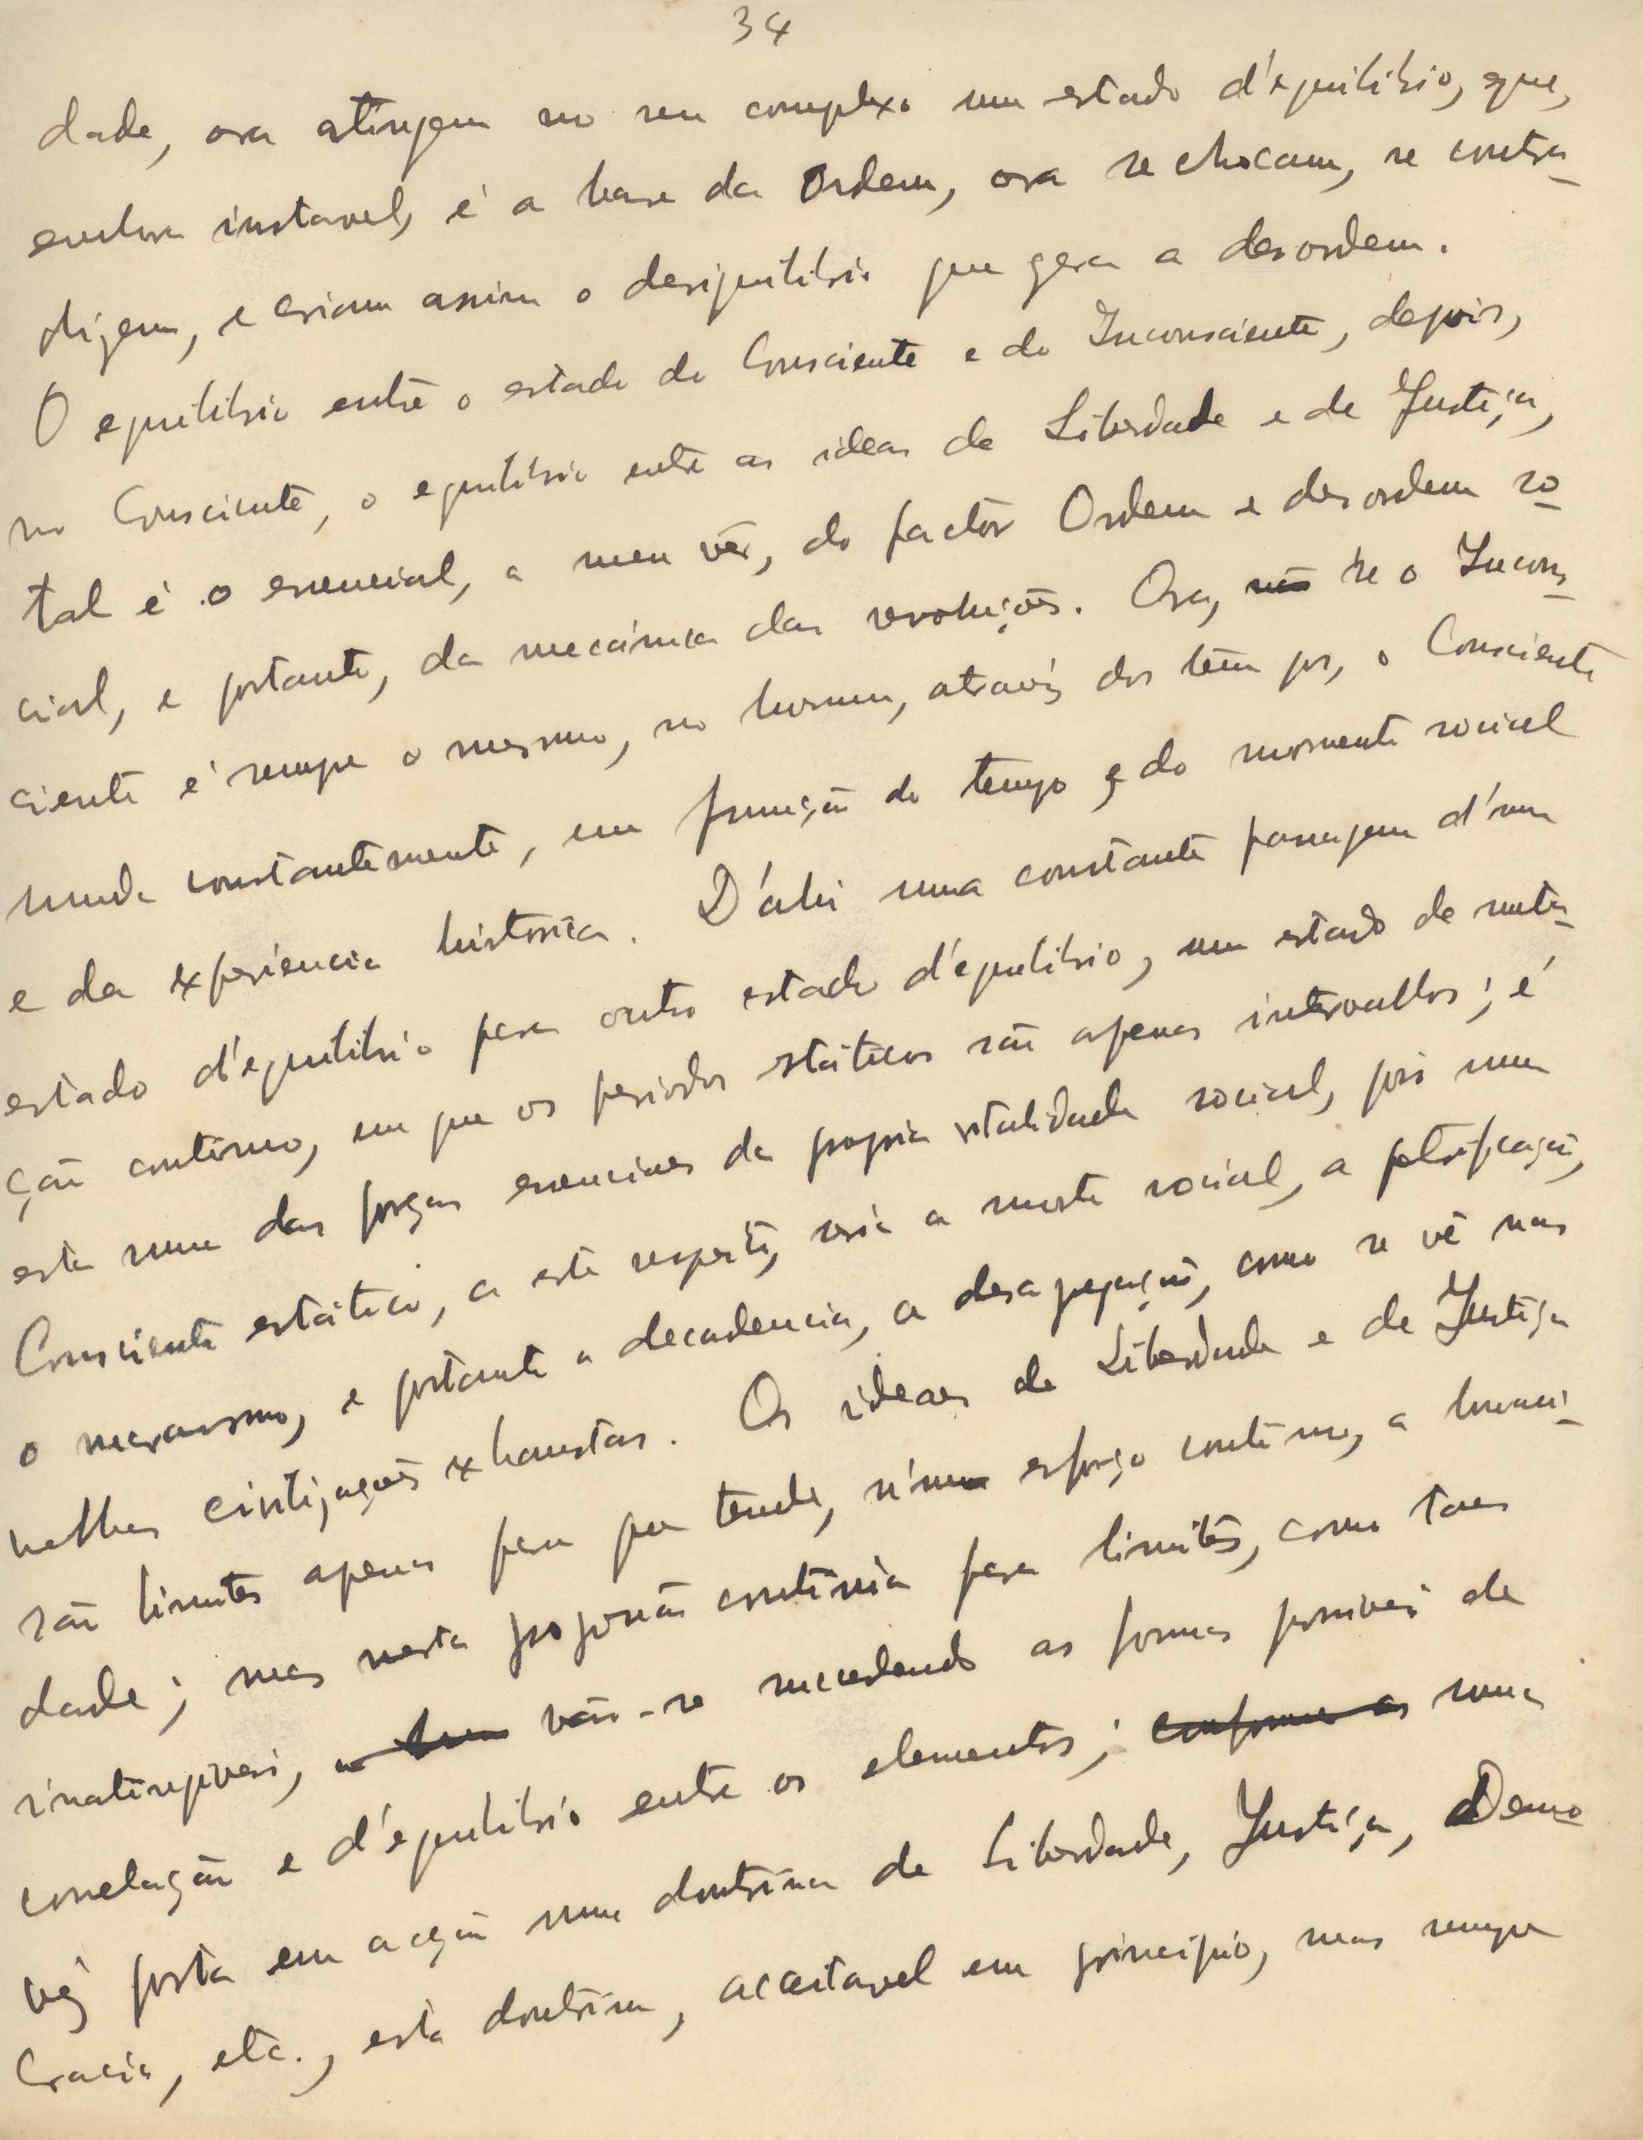 34
dade, ora atingem no seu complexo um estado d'equilibrio, que,
embora instavel, é a base da Ordem, ora se chocam, se contra-
dizem, e criam assim o desiquilibrio que gera a desordem.
O equilibrio entre o estado do Consciente e do Inconsciente, depois,
no Consciente, o equilibrio entre as ideas de Liberdade e de Justiça,
tal é o essencial, a meu vêr, do factor Ordem e desordem so-
cial, e portanto, da mecánica das revoluções. Ora, não se o Incons-
ciente é sempre o mesmo, no homem, através dos tempos, o Consciente
muda constantemente, em função do tempo e do momento social
e da experiencia historica. D'ahi uma constante passagem d'um
estado d'equilibrio para outro estado d'equilibrio, um estado de muta-
ção contínuo, em que os periodos státicos são apenas intervallos; é
esta uma das forças essenciaes da propria vitalidade social, pois um
Consciente estático, a este respeito, seria a morte social, a petrificação,
o marasmo, e portanto a decadencia, a desagregação, como se vê nas
velhas civilizações exhaustas. Os ideaes de Liberdade e de Justiça
são limites apenas para que tende, n'um esforço contínuo, a humani-
dade; mas nesta progressão contínua para limites, como taes
inatingiveis, vão-se sucedendo as formas possiveis de
correlação e d'equilibrio entre os elementos; conforme as uma
vez posta em acção uma doutrina de Liberdade, Justiça, Demo-
cracia, etc., esta doutrina, acceitavel em principio, mas sempre